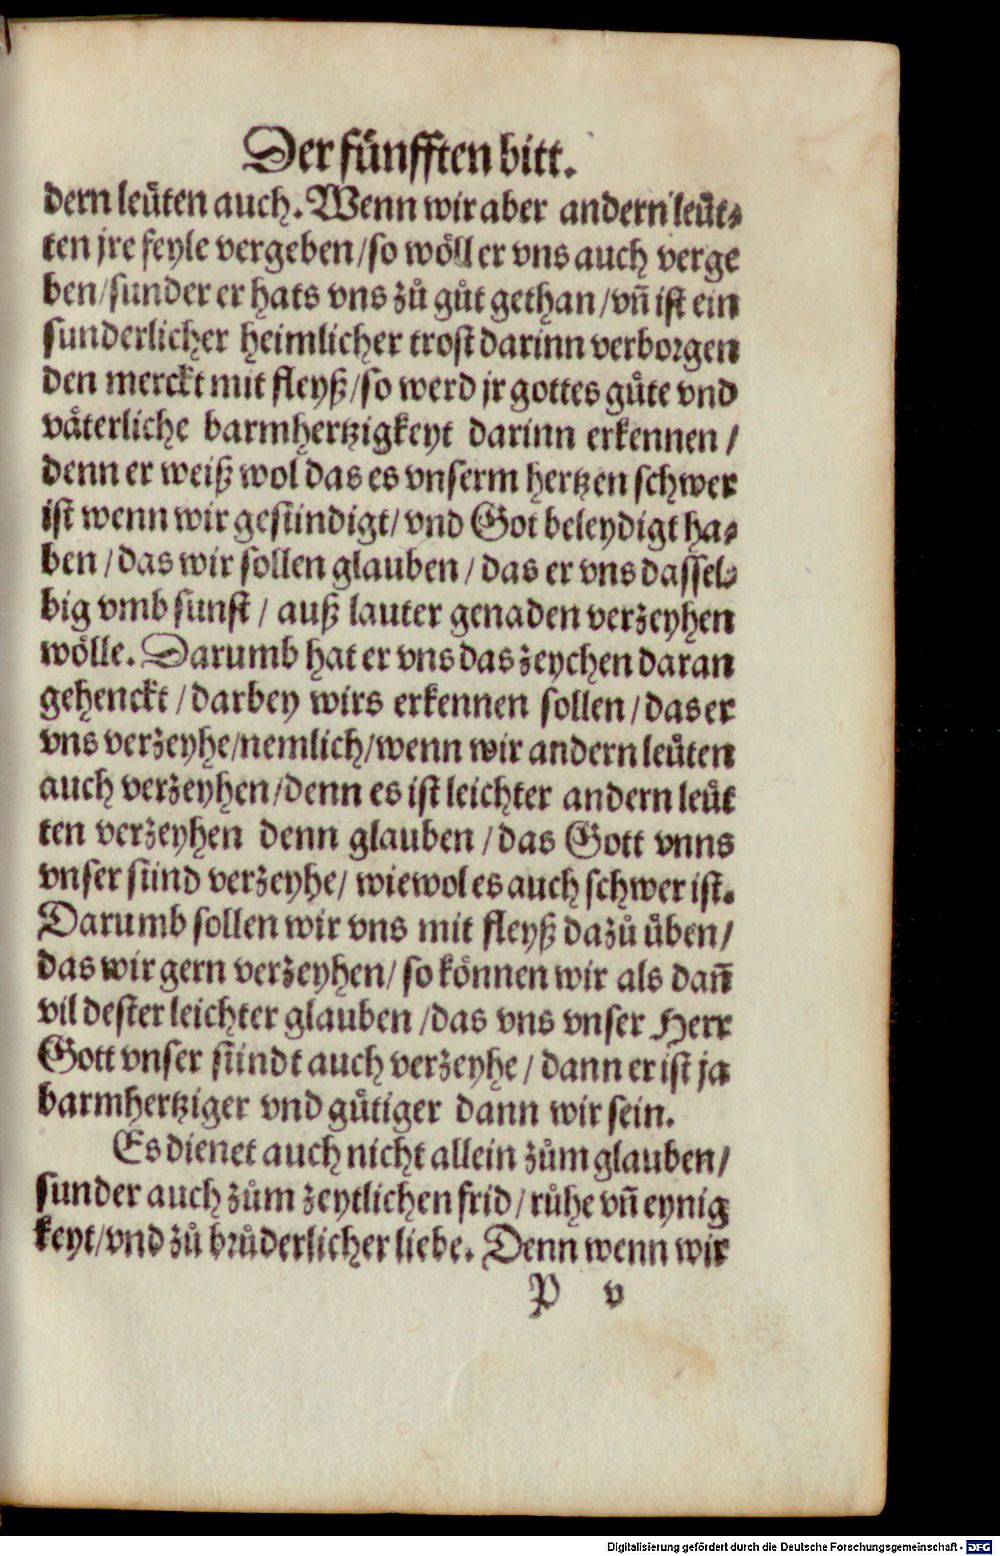 Der fünfften bitt.
dern leüten auch. Wenn wir aber andern leüt⸗
ten jre feyle vergeben/so wöll er vns auch verge
ben/sunder er hats vns zů gůt gethan/vñ ist ein
sunderlicher heimlicher trost darinn verborgen
den merckt mit fleyß/so werd jr gottes güte vnd
väterliche barmhertzigkeyt darinn erkennen/
denn er weiß wol das es vnserm hertzen schwer
ist wenn wir gesündigt/vnd Got beleydigt ha⸗
ben/das wir sollen glauben/das er vns dassel⸗
big vmb sunst/auß lauter genaden verzeyhen
wölle. Darumb hat er vns das zeychen daran
gehenckt/darbey wirs erkennen sollen/das er
vns verzeyhe/nemlich/wenn wir andern leüten
auch verzeyhen/denn es ist leichter andern leüt
ten verzeyhen denn glauben/das Gott vnns
vnser sünd verzeyhe/wiewol es auch schwer ist.
Darumb sollen wir vns mit fleyß dazů üben/
das wir gern verzeyhen/so können wir als dañ
vil dester leichter glauben/das vns vnser Herr
Gott vnser sündt auch verzeyhe/dann er ist ja
barmhertziger vnd gütiger dann wir sein.
Es dienet auch nicht allein zům glauben/
sunder auch zům zeytlichen frid/růhe vñ eynig
keyt/vnd zů brůderlicher liebe. Denn wenn wir
P v
Digitalisierung gefördert durch die Deutsche Forschungsgemeinschaft - DFG